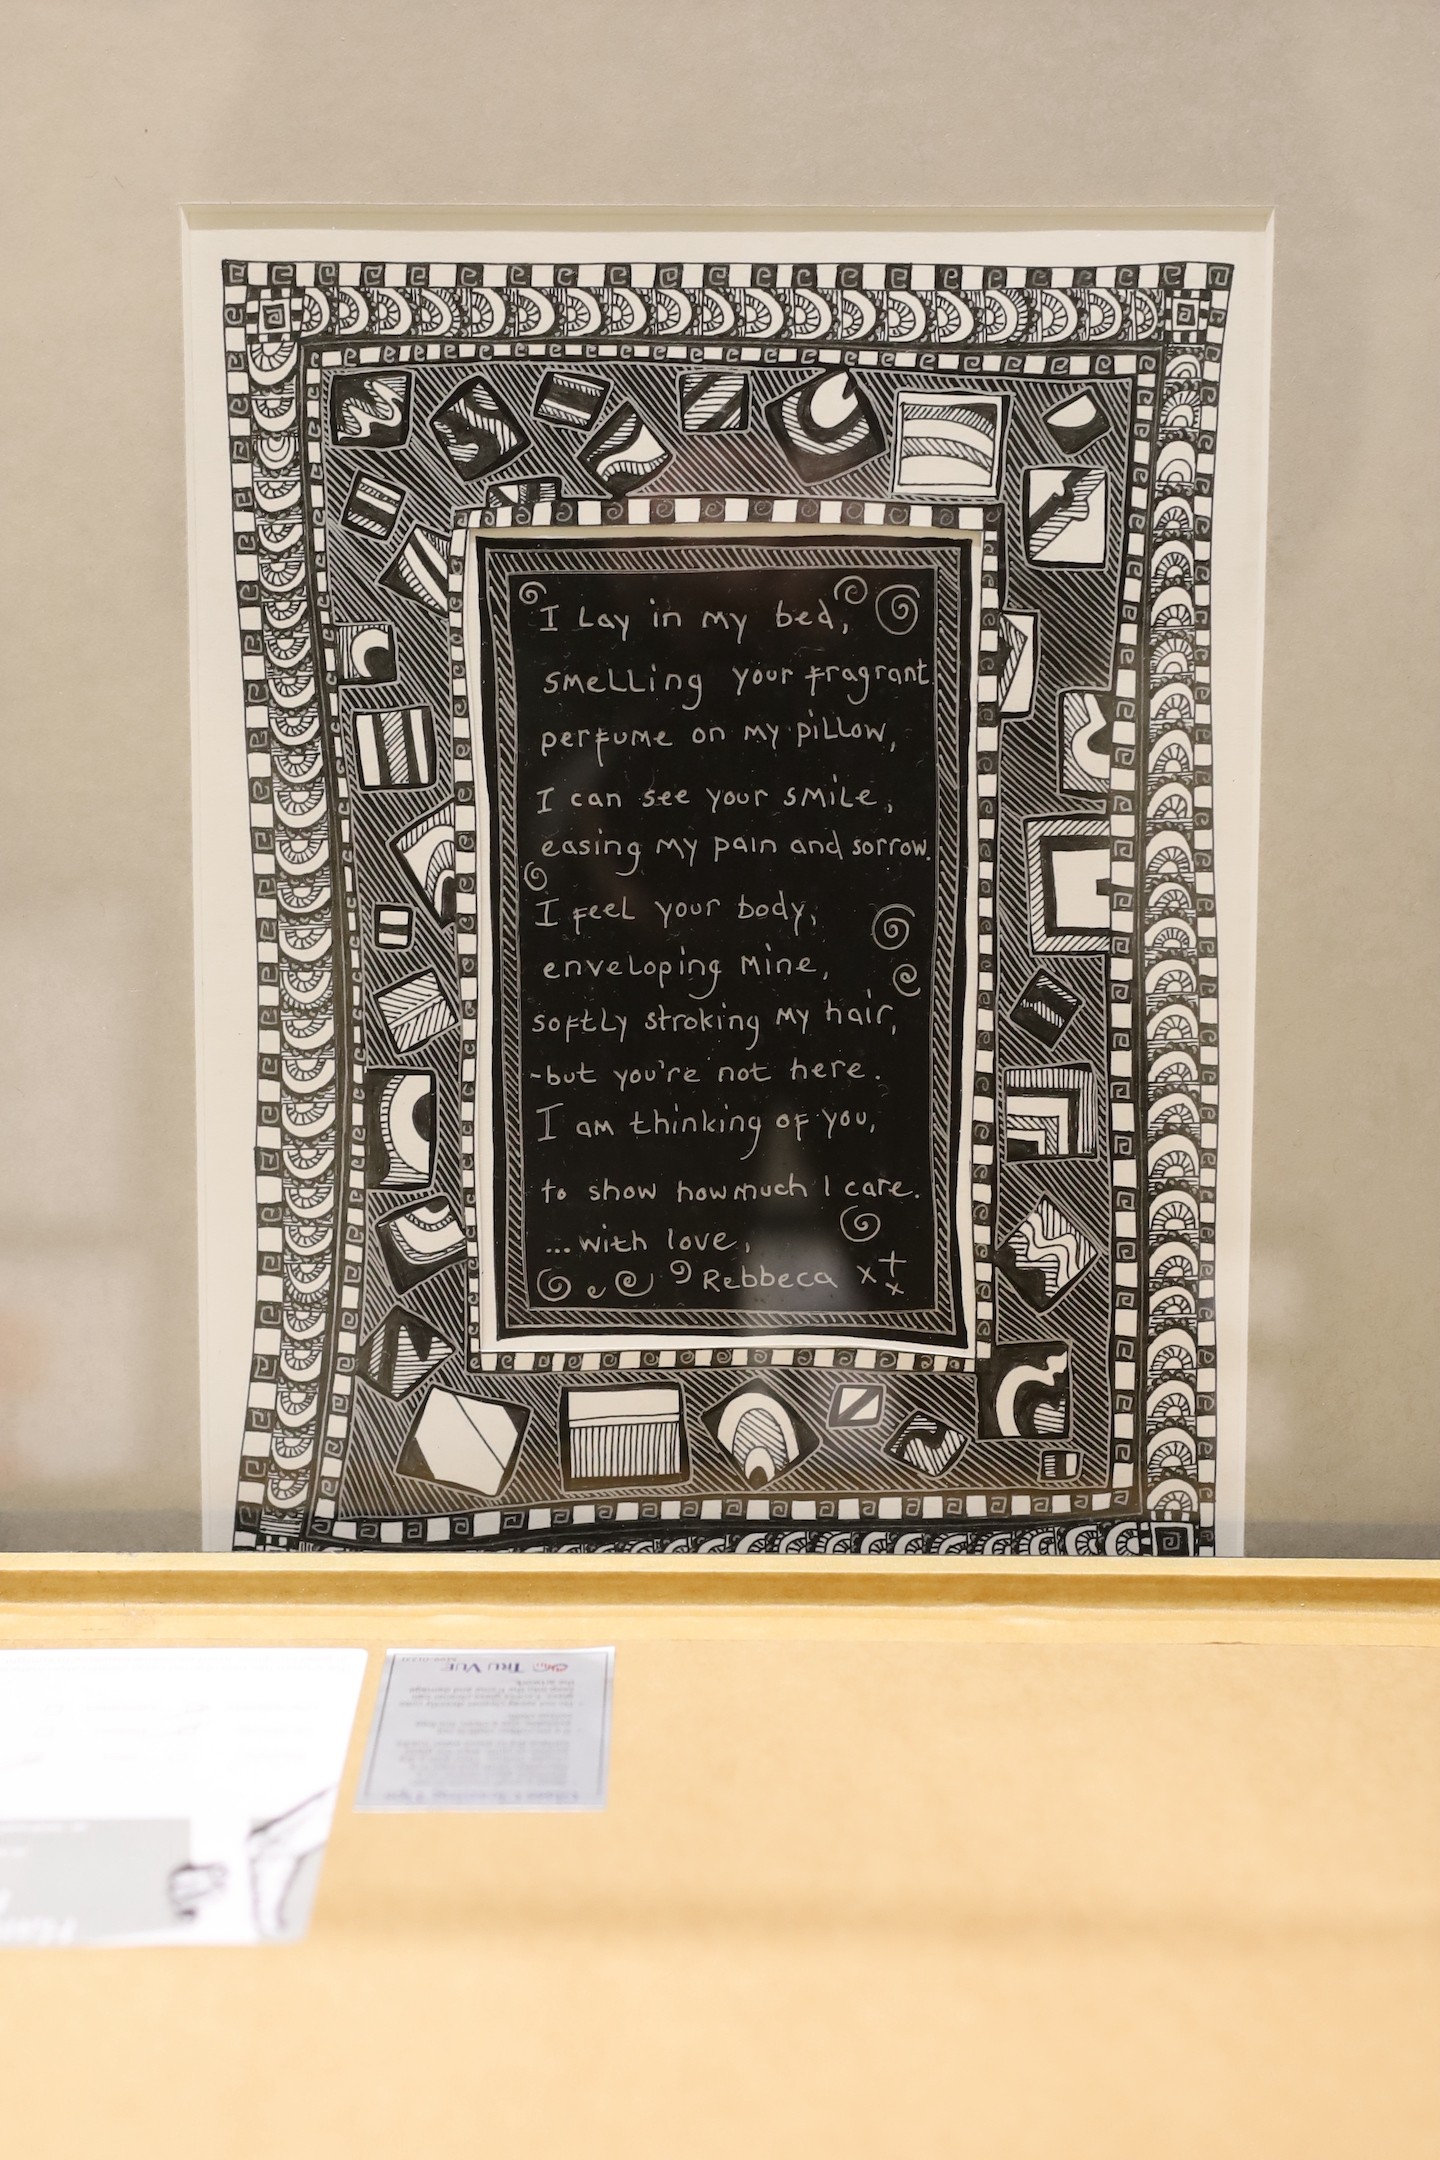 I Lay in my bed,
smelling your fragrant
perfume on my pillow,
I can see your smile,
easing my pain and sorrow.
I feel your body,
enveloping mine,
softly stroking my hair,
-but you're not here.
I am thinking of you,
to show how much I care.
...with love,
Rebbeca x + x
TRU VUE